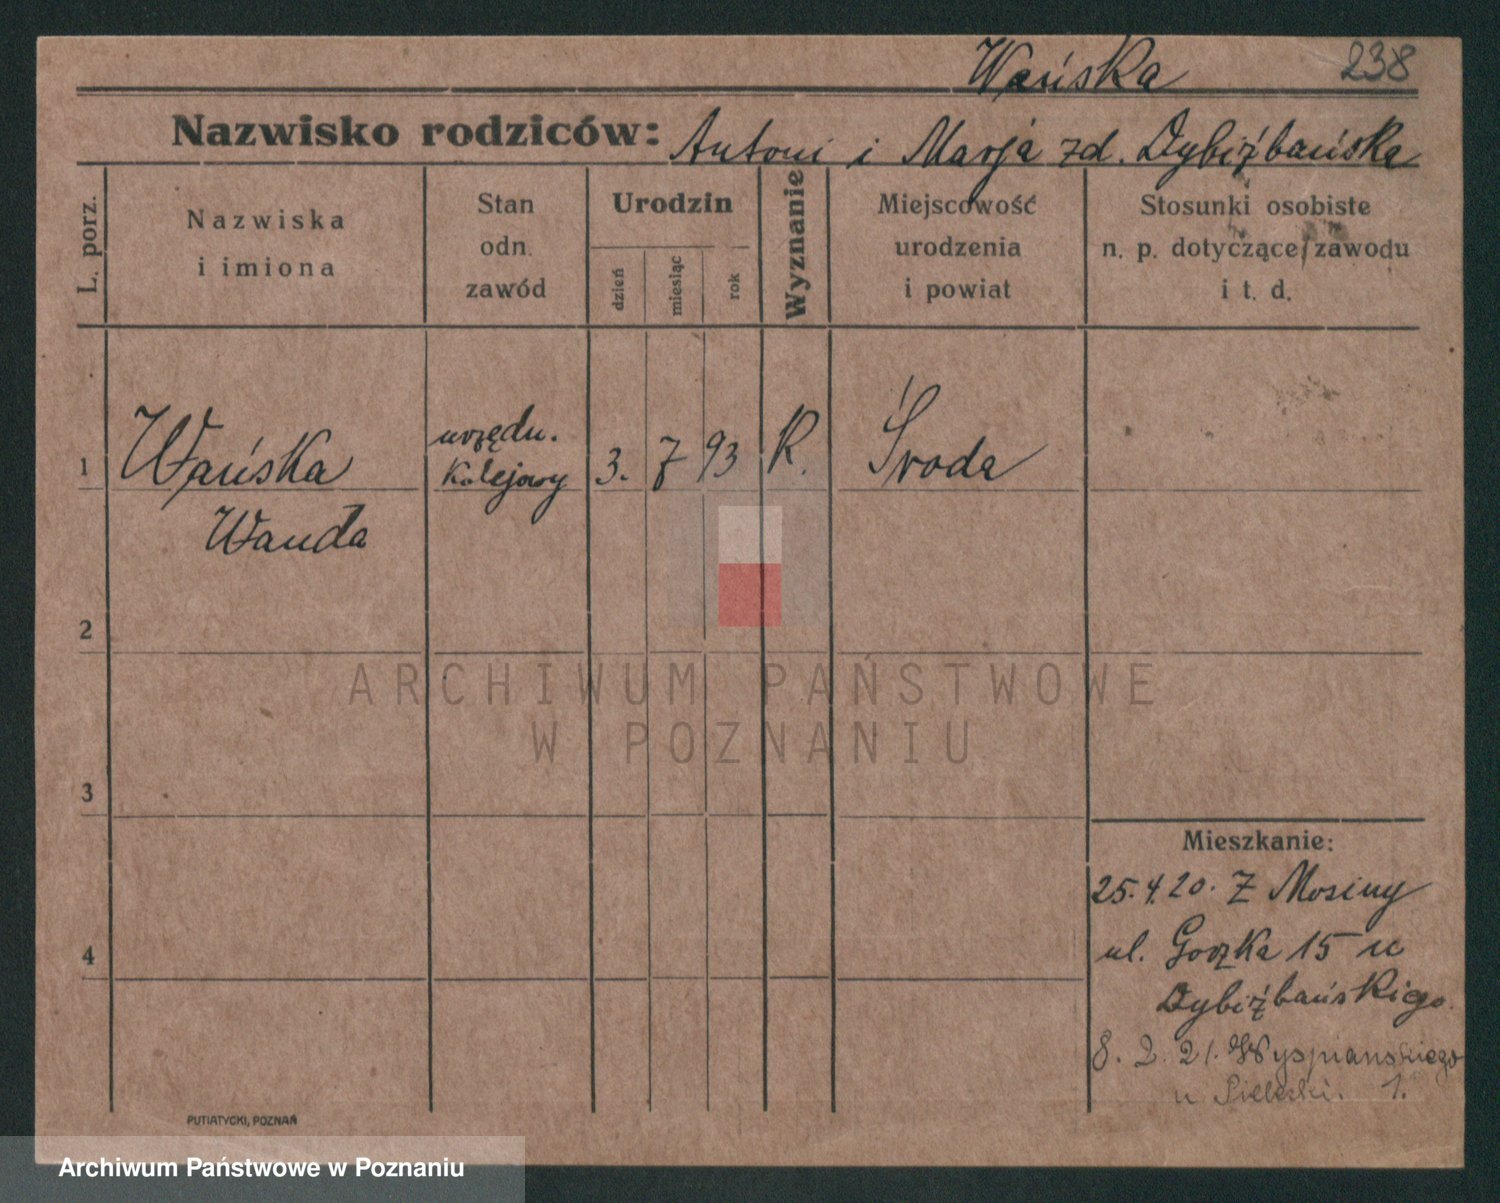 Wańska 238
Nazwisko rodziców: Antoni i Marja zd. Dybiźbańska
L. porz.
Nazwiska
i imiona
Stan
odn.
zawód
Urodzin
dzień
miesiąc
rok
Wyznanie
Miejscowość
urodzenia
i powiat
Stosunki osobiste
n. p. dotyczące zawodu
i t. d.
1 Wańska urzędn. kolejowy 3. 7 93 K. Środa
Wanda
2
ARCHIWUM PAŃSTWOWE
W POZNANIU
3
4
Mieszkanie:
25.4.20. Z Mosiny
ul. Gorzka 15 u
Dybiźbańskiego.
8. 2. 21. Wyspiańskiego
u 1.
PUTIATYCKI, POZNAŃ
Archiwum Państwowe w Poznaniu